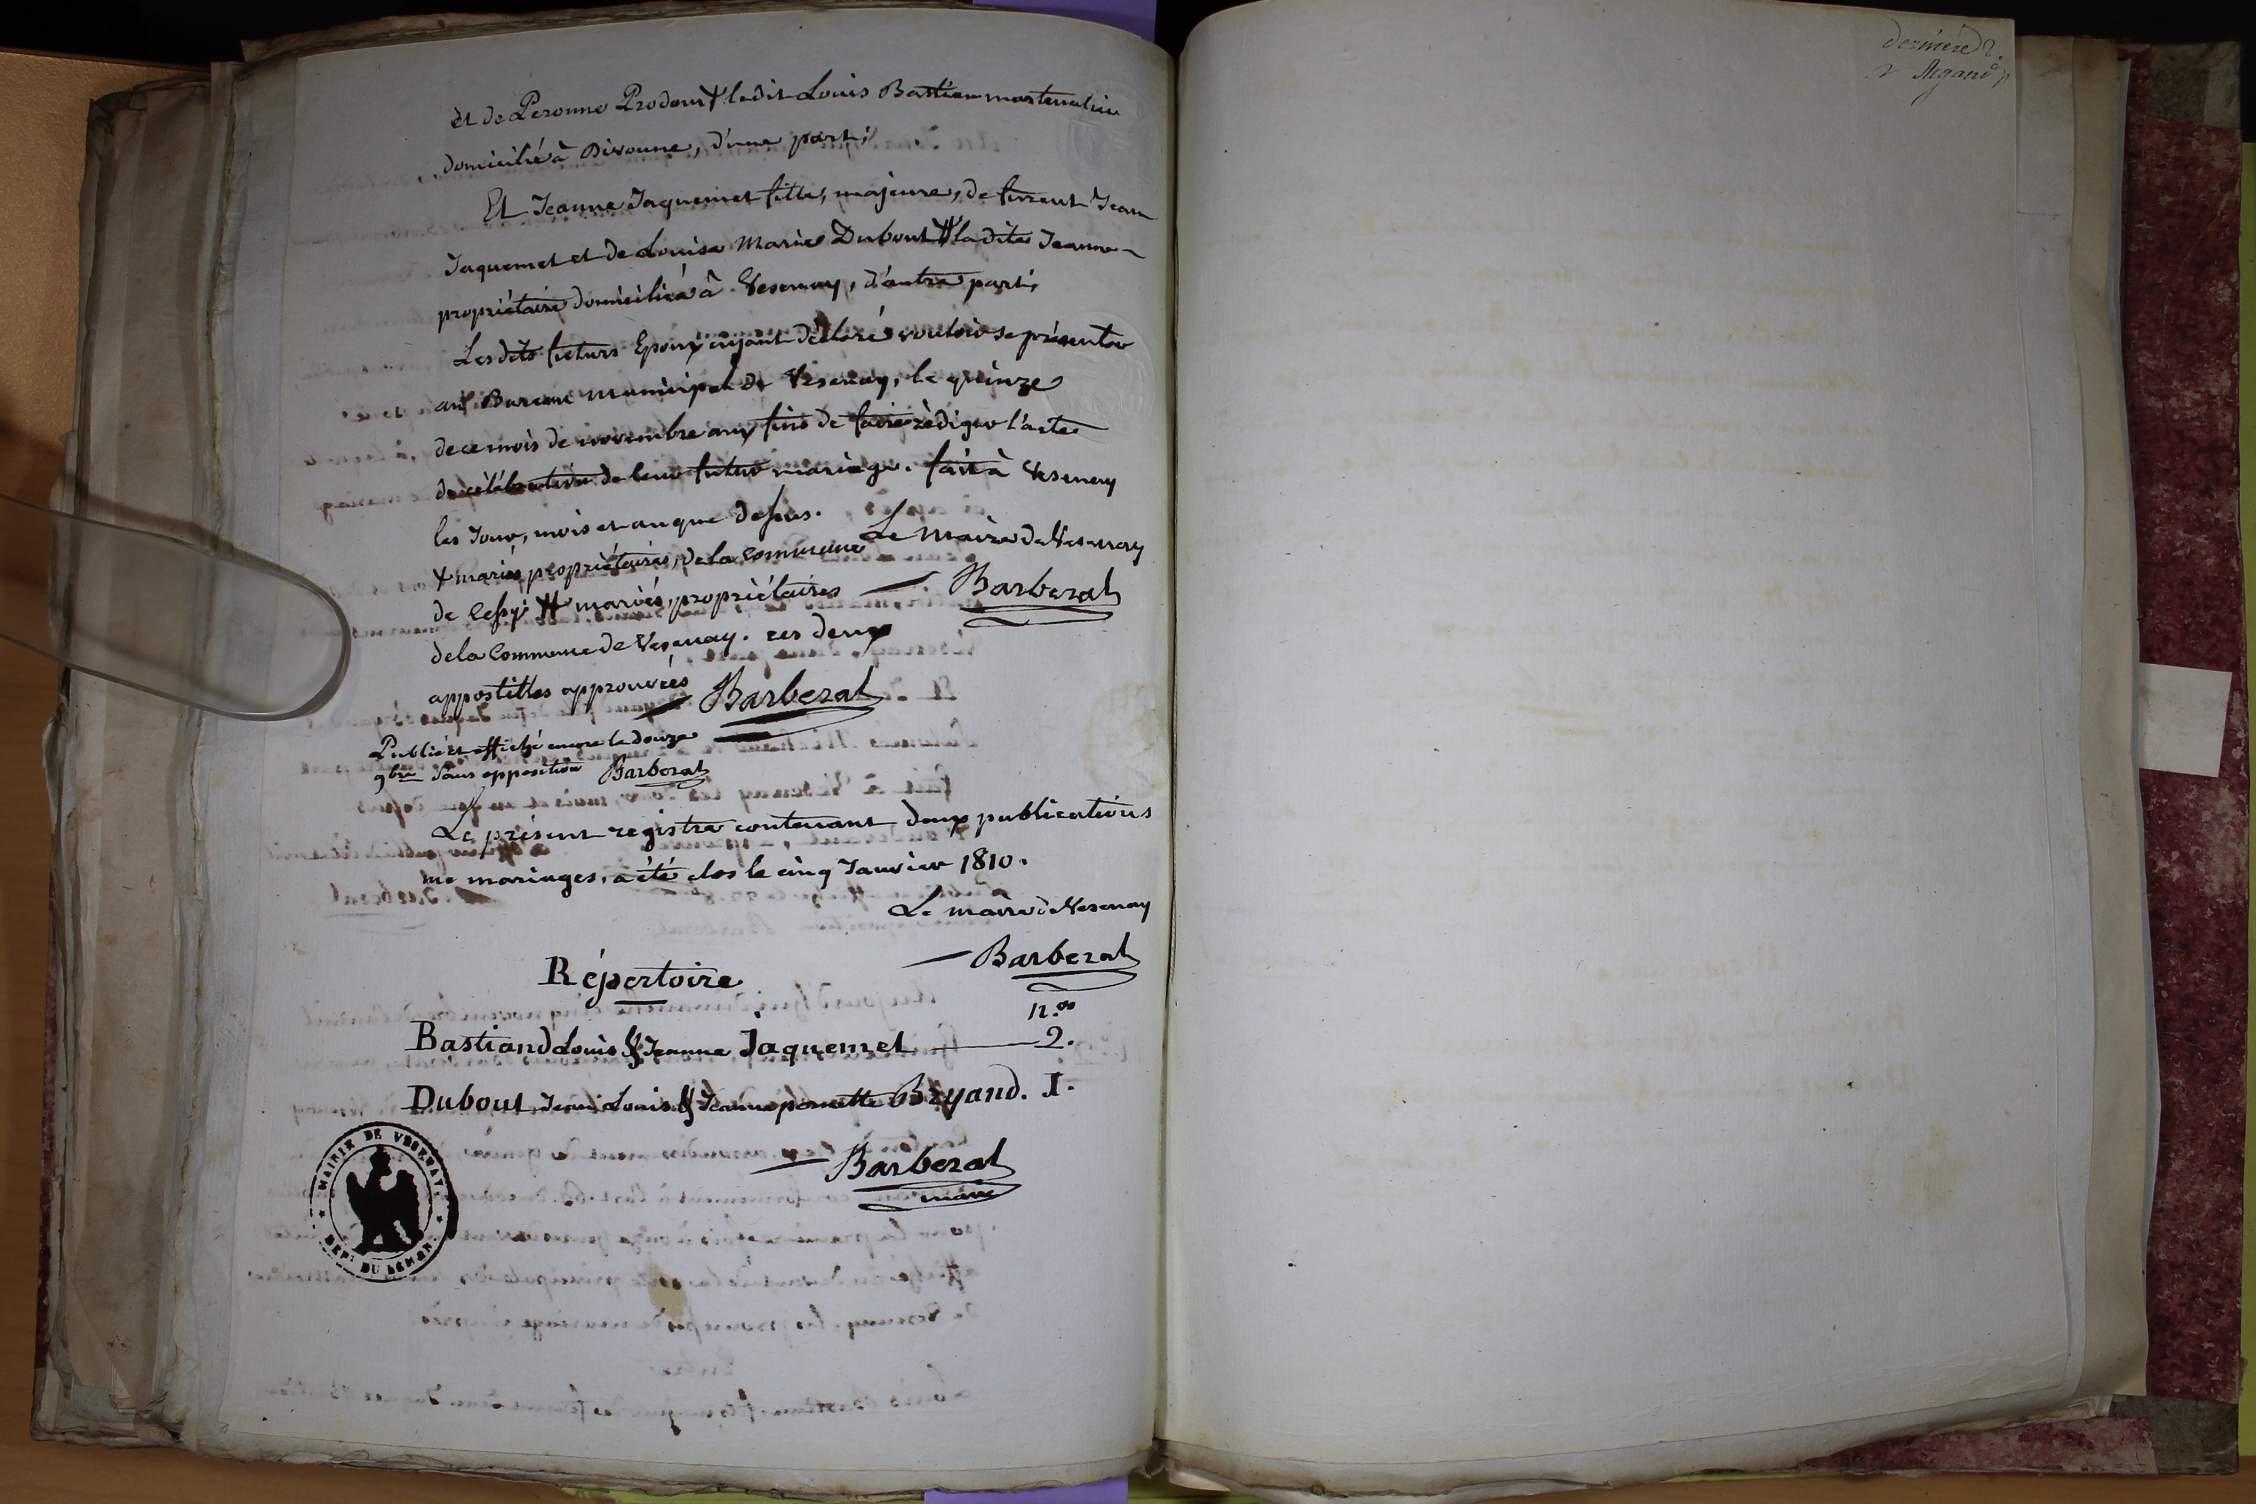 et de Peronne Prodon ⵜ ledit Louis Bastian
domicilié à Divonne, d'une part;
Et Jeanne Jaquemet fille, majeure, de furent Jean
Jaquemet et de Louise Marie Dubout # la dite Jeanne
propriétaire domiciliée à Vesenay, d'autre part;
Lesdits futurs Epoux ayant déclaré vouloir se présenter
au Bureau municipal de Vesenay, le quinze
de ce mois de novembre aux fins de faire rédiger l'acte
de célébration de leur futur mariage. fait à Vesenay
les Jour, mois et an que dessus.
Le Maire de Vesenay
Barberat
+ mariés propriétaires, de la commune
de Cessy; # mariés, propriétaires
de la Commune de Vesenay. ces deux
appostilles approuvées
Barberat
Publié et affiché encore le douze
9bre sans opposition Barberat
Le présent registre contenant deux publications
de mariages, a été clos le cinq Janvier 1810.
Le maire de Vesenay
Barberat
Répertoire
n.os
Bastiand Louis & Jeanne Jaquemet 2.
Dubout Jean Louis & Jeanne pernette Bryand. 1.
Barberat
maire
MAIRIE DE VESENAY
DEPT DU LEMAN
dernière